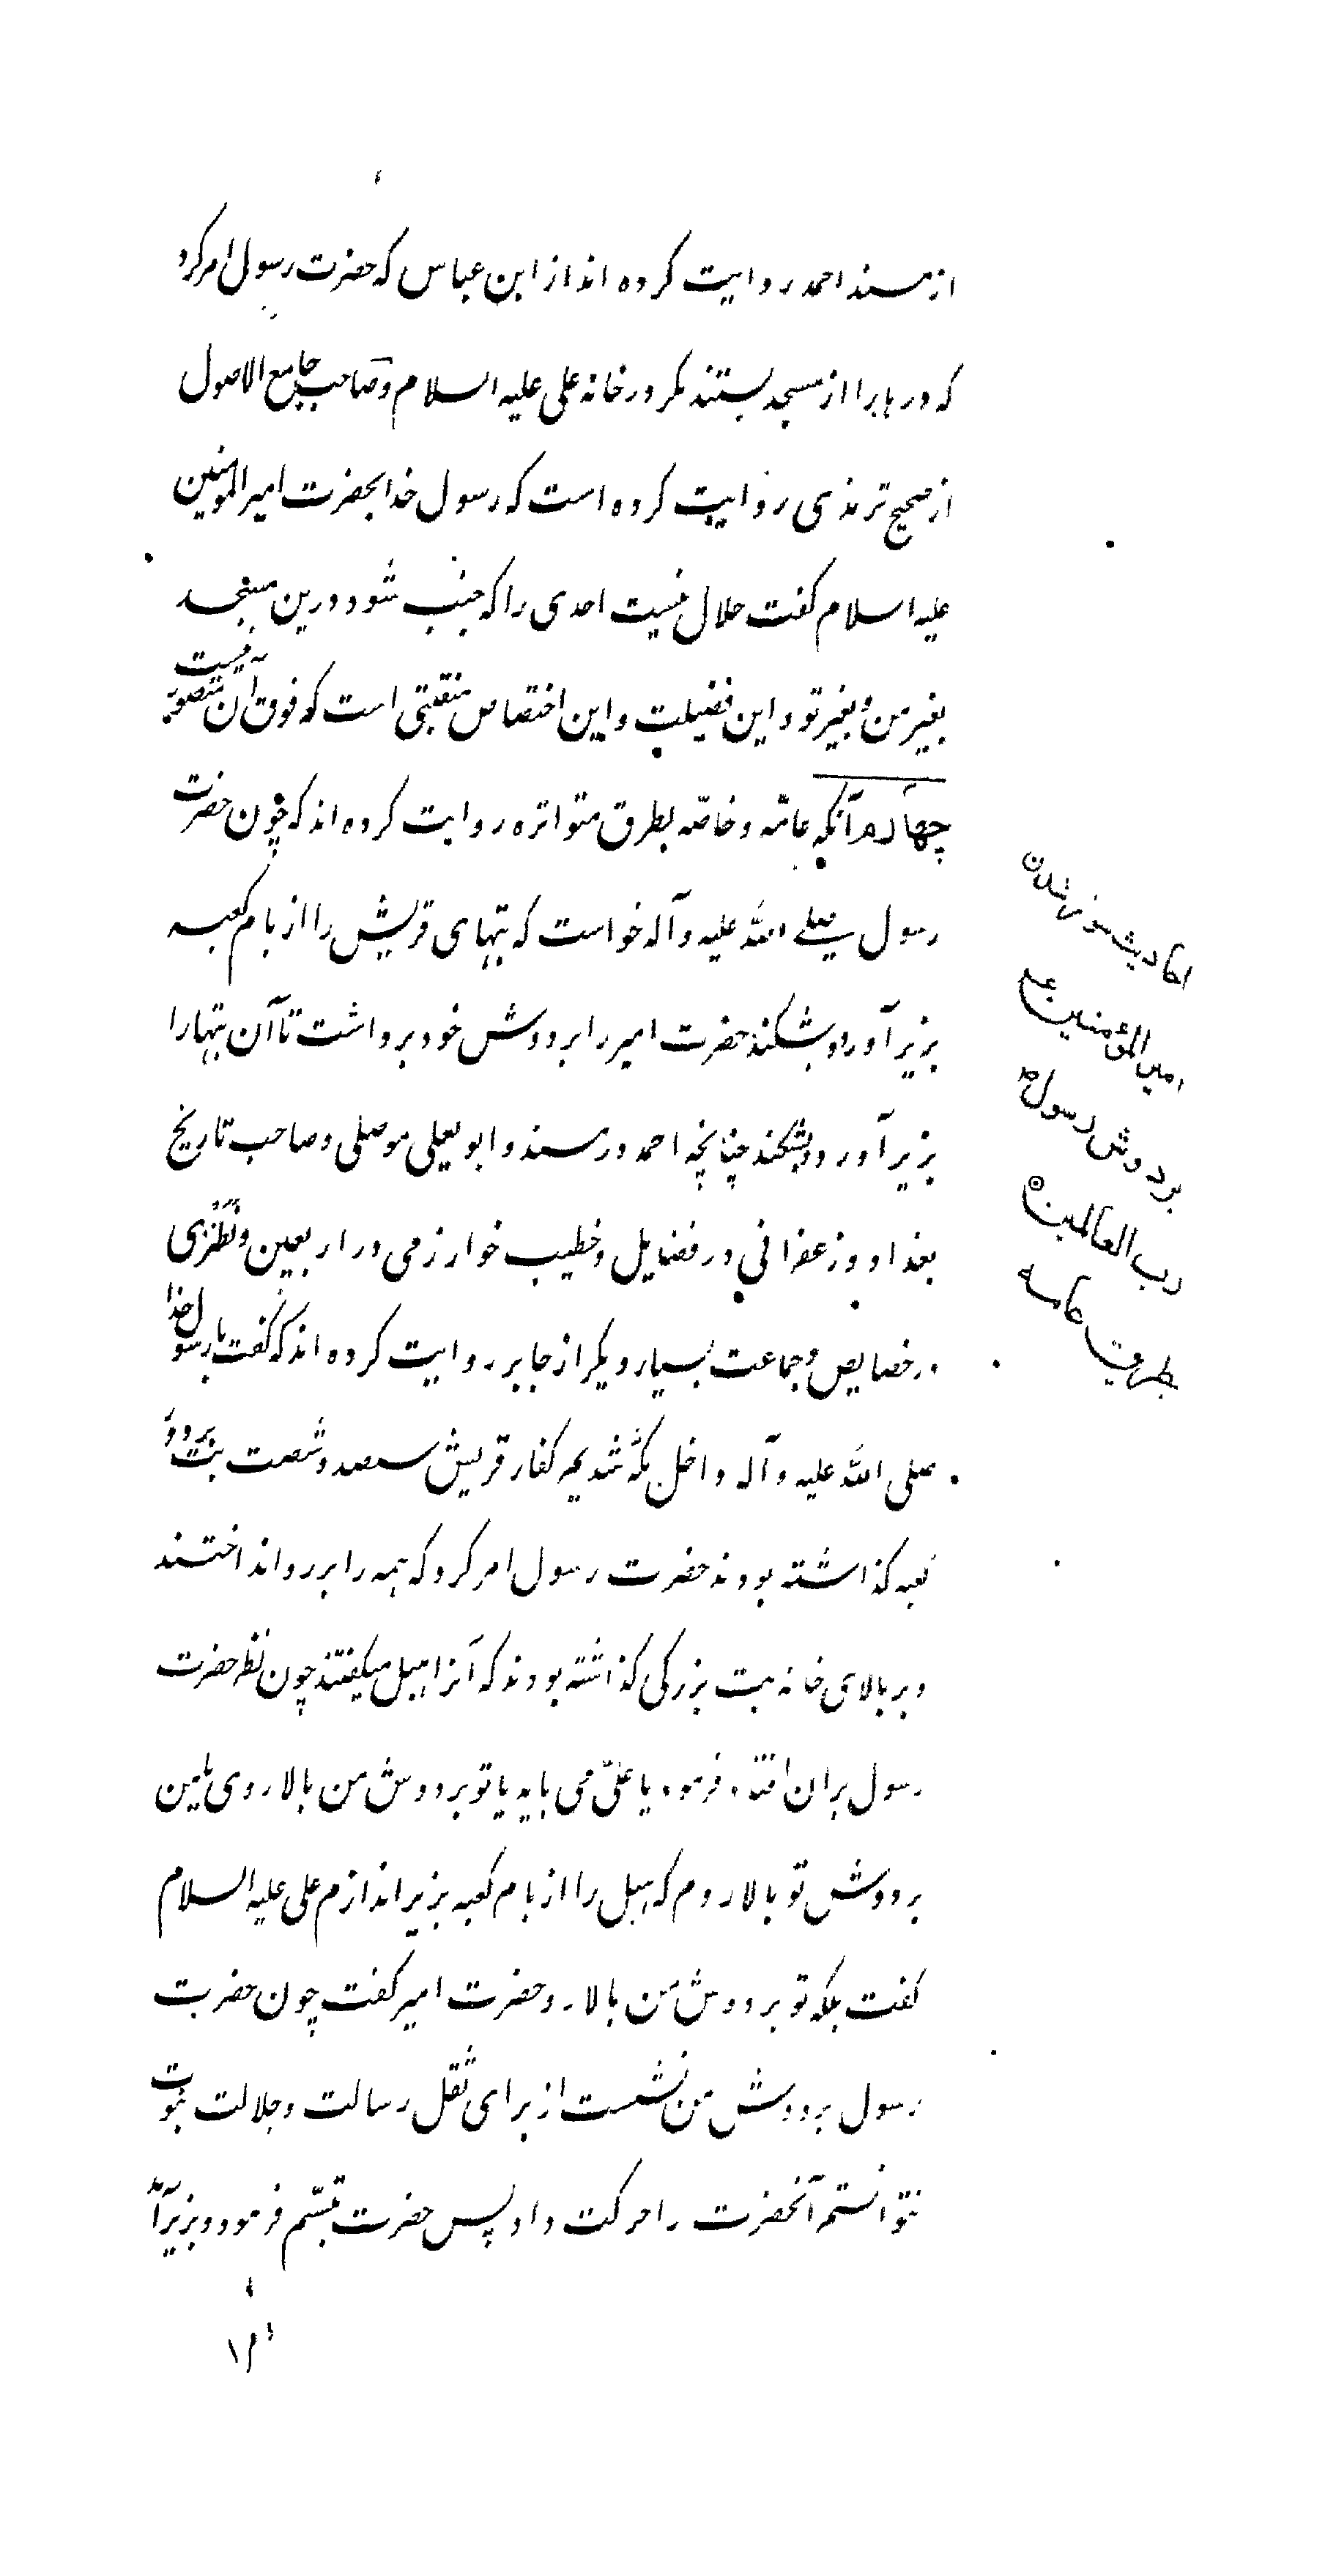 از مسند احمد روایت کرده اند از ابن عباس که حضرت رسول امر کرد
که درها را از مسجد بستند مگر در خانه علی علیه السلام و صاحب جامع الاصول
از صحیح ترمذی روایت کرده است که رسول خدا بحضرت امیر المومنین
علیه اسلام گفت حلال نیست احدی را که جنب شود درین مسجد
بغیر من و بغیر تو و این فضیلت و این اختصاص منقبتی است که فوق آن متصور نیست
چهارم آنکه عامّه و خاصّه بطرق متواتره روایت کرده اند که چون حضرت
رسول صلے الله علیه و آله خواست که بتهای قریش را از بام کعبه
بزیر آورد و بشکند حضرت امیر را بر دوش خود برداشت تا آن بتها را
بزیر آورد و بشکند چنانچه احمد در مسند و ابو یعلی موصلی و صاحب تاریخ
بغداد و زعفرانی در فضایل و خطیب خوارزمی در اربعین و نطنزی
در خصایص و جماعت بسیار دیگر از جابر روایت کرده اند که گفت با رسول خدا
صلی الله علیه و آله داخل مکّه شدیم کفار قریش سیصد و شصت بت بر دور
کعبه گذاشته بودند حضرت رسول امر کرد که همه را بر رو انداختند
و بر بالای خانه بت بزرگی گذاشته بودند که آنرا هبل میگفتند چون نظر حضرت
رسول بران افتاد فرمود یا علیّ می باید یا تو بر دوش من بالا روی یا من
بر دوش تو بالا روم که هبل را از بام کعبه بزیر اندازم علی علیه السلام
گفت بلکه تو بر دوش من بالا رو حضرت امیر گفت چون حضرت
رسول بر دوش من نشست از برای ثقل رسالت و جلالت نبوت
نتوانستم آنحضرت را حرکت داد پس حضرت تبسّم فرمود و بزیر آمد
احادیث سوار شدن
امیر المؤمنین ع
بر دوش رسول
رب العالمین
بطریق عامه